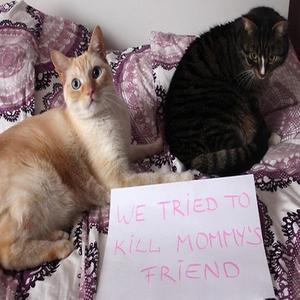 WE TRIED TO
KILL MOMMY'S
FRIEND